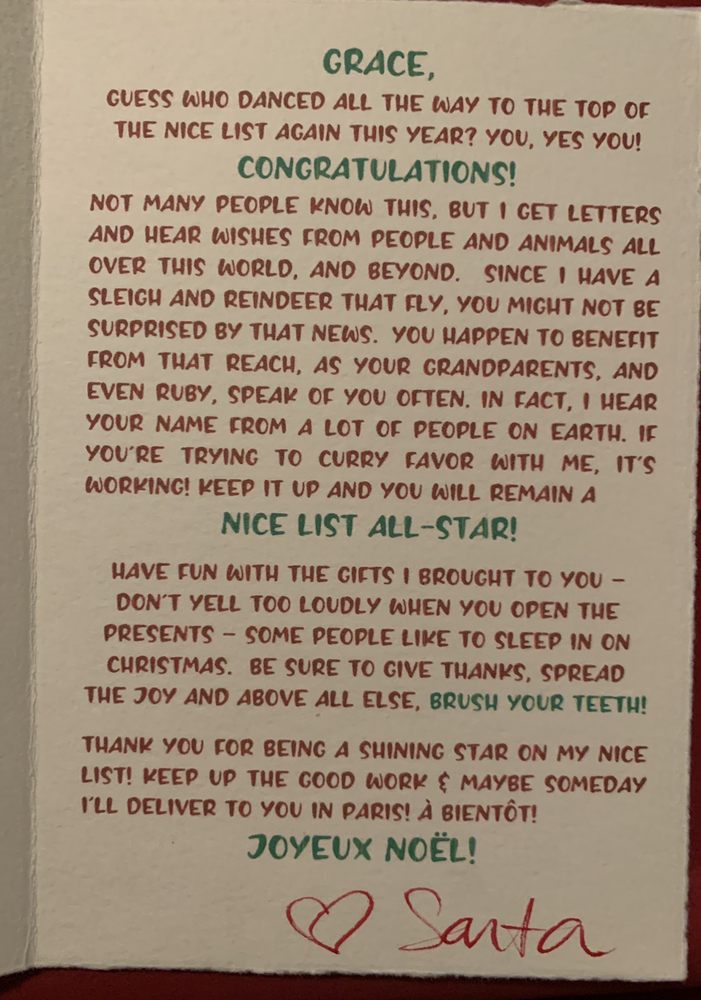 GRACE,
GUESS WHO DANCED ALL THE WAY TO THE TOP OF
THE NICE LIST AGAIN THIS YEAR? YOU, YES YOU!
CONGRATULATIONS!
NOT MANY PEOPLE KNOW THIS, BUT I GET LETTERS
AND HEAR WISHES FROM PEOPLE AND ANIMALS ALL
OVER THIS WORLD, AND BEYOND. SINCE I HAVE A
SLEIGH AND REINDEER THAT FLY, YOU MIGHT NOT BE
SURPRISED BY THAT NEWS. YOU HAPPEN TO BENEFIT
FROM THAT REACH, AS YOUR GRANDPARENTS, AND
EVEN RUBY, SPEAK OF YOU OFTEN. IN FACT, I HEAR
YOUR NAME FROM A LOT OF PEOPLE ON EARTH. IF
YOU'RE TRYING TO CURRY FAVOR WITH ME, IT'S
WORKING! KEEP IT UP AND YOU WILL REMAIN A
NICE LIST ALL-STAR!
HAVE FUN WITH THE GIFTS I BROUGHT TO YOU –
DON'T YELL TOO LOUDLY WHEN YOU OPEN THE
PRESENTS – SOME PEOPLE LIKE TO SLEEP IN ON
CHRISTMAS. BE SURE TO GIVE THANKS, SPREAD
THE JOY AND ABOVE ALL ELSE, BRUSH YOUR TEETH!
THANK YOU FOR BEING A SHINING STAR ON MY NICE
LIST! KEEP UP THE GOOD WORK & MAYBE SOMEDAY
I'LL DELIVER TO YOU IN PARIS! À BIENTÔT!
JOYEUX NOËL!
♡ Santa